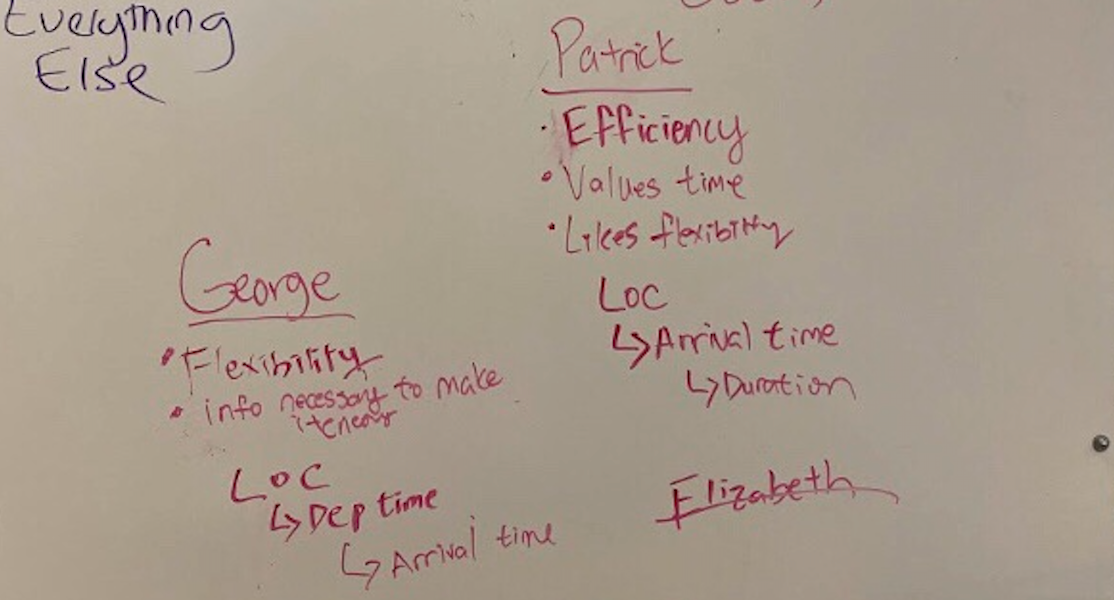 Everything
Else
Patrick
• Efficiency
• Values time
• Likes flexibility
LOC
↳ Arrival time
↳ Duration
George
• Flexibility
• info necessary to make
iteneary
LOC
↳ Dep time
↳ Arrival time
Elizabeth